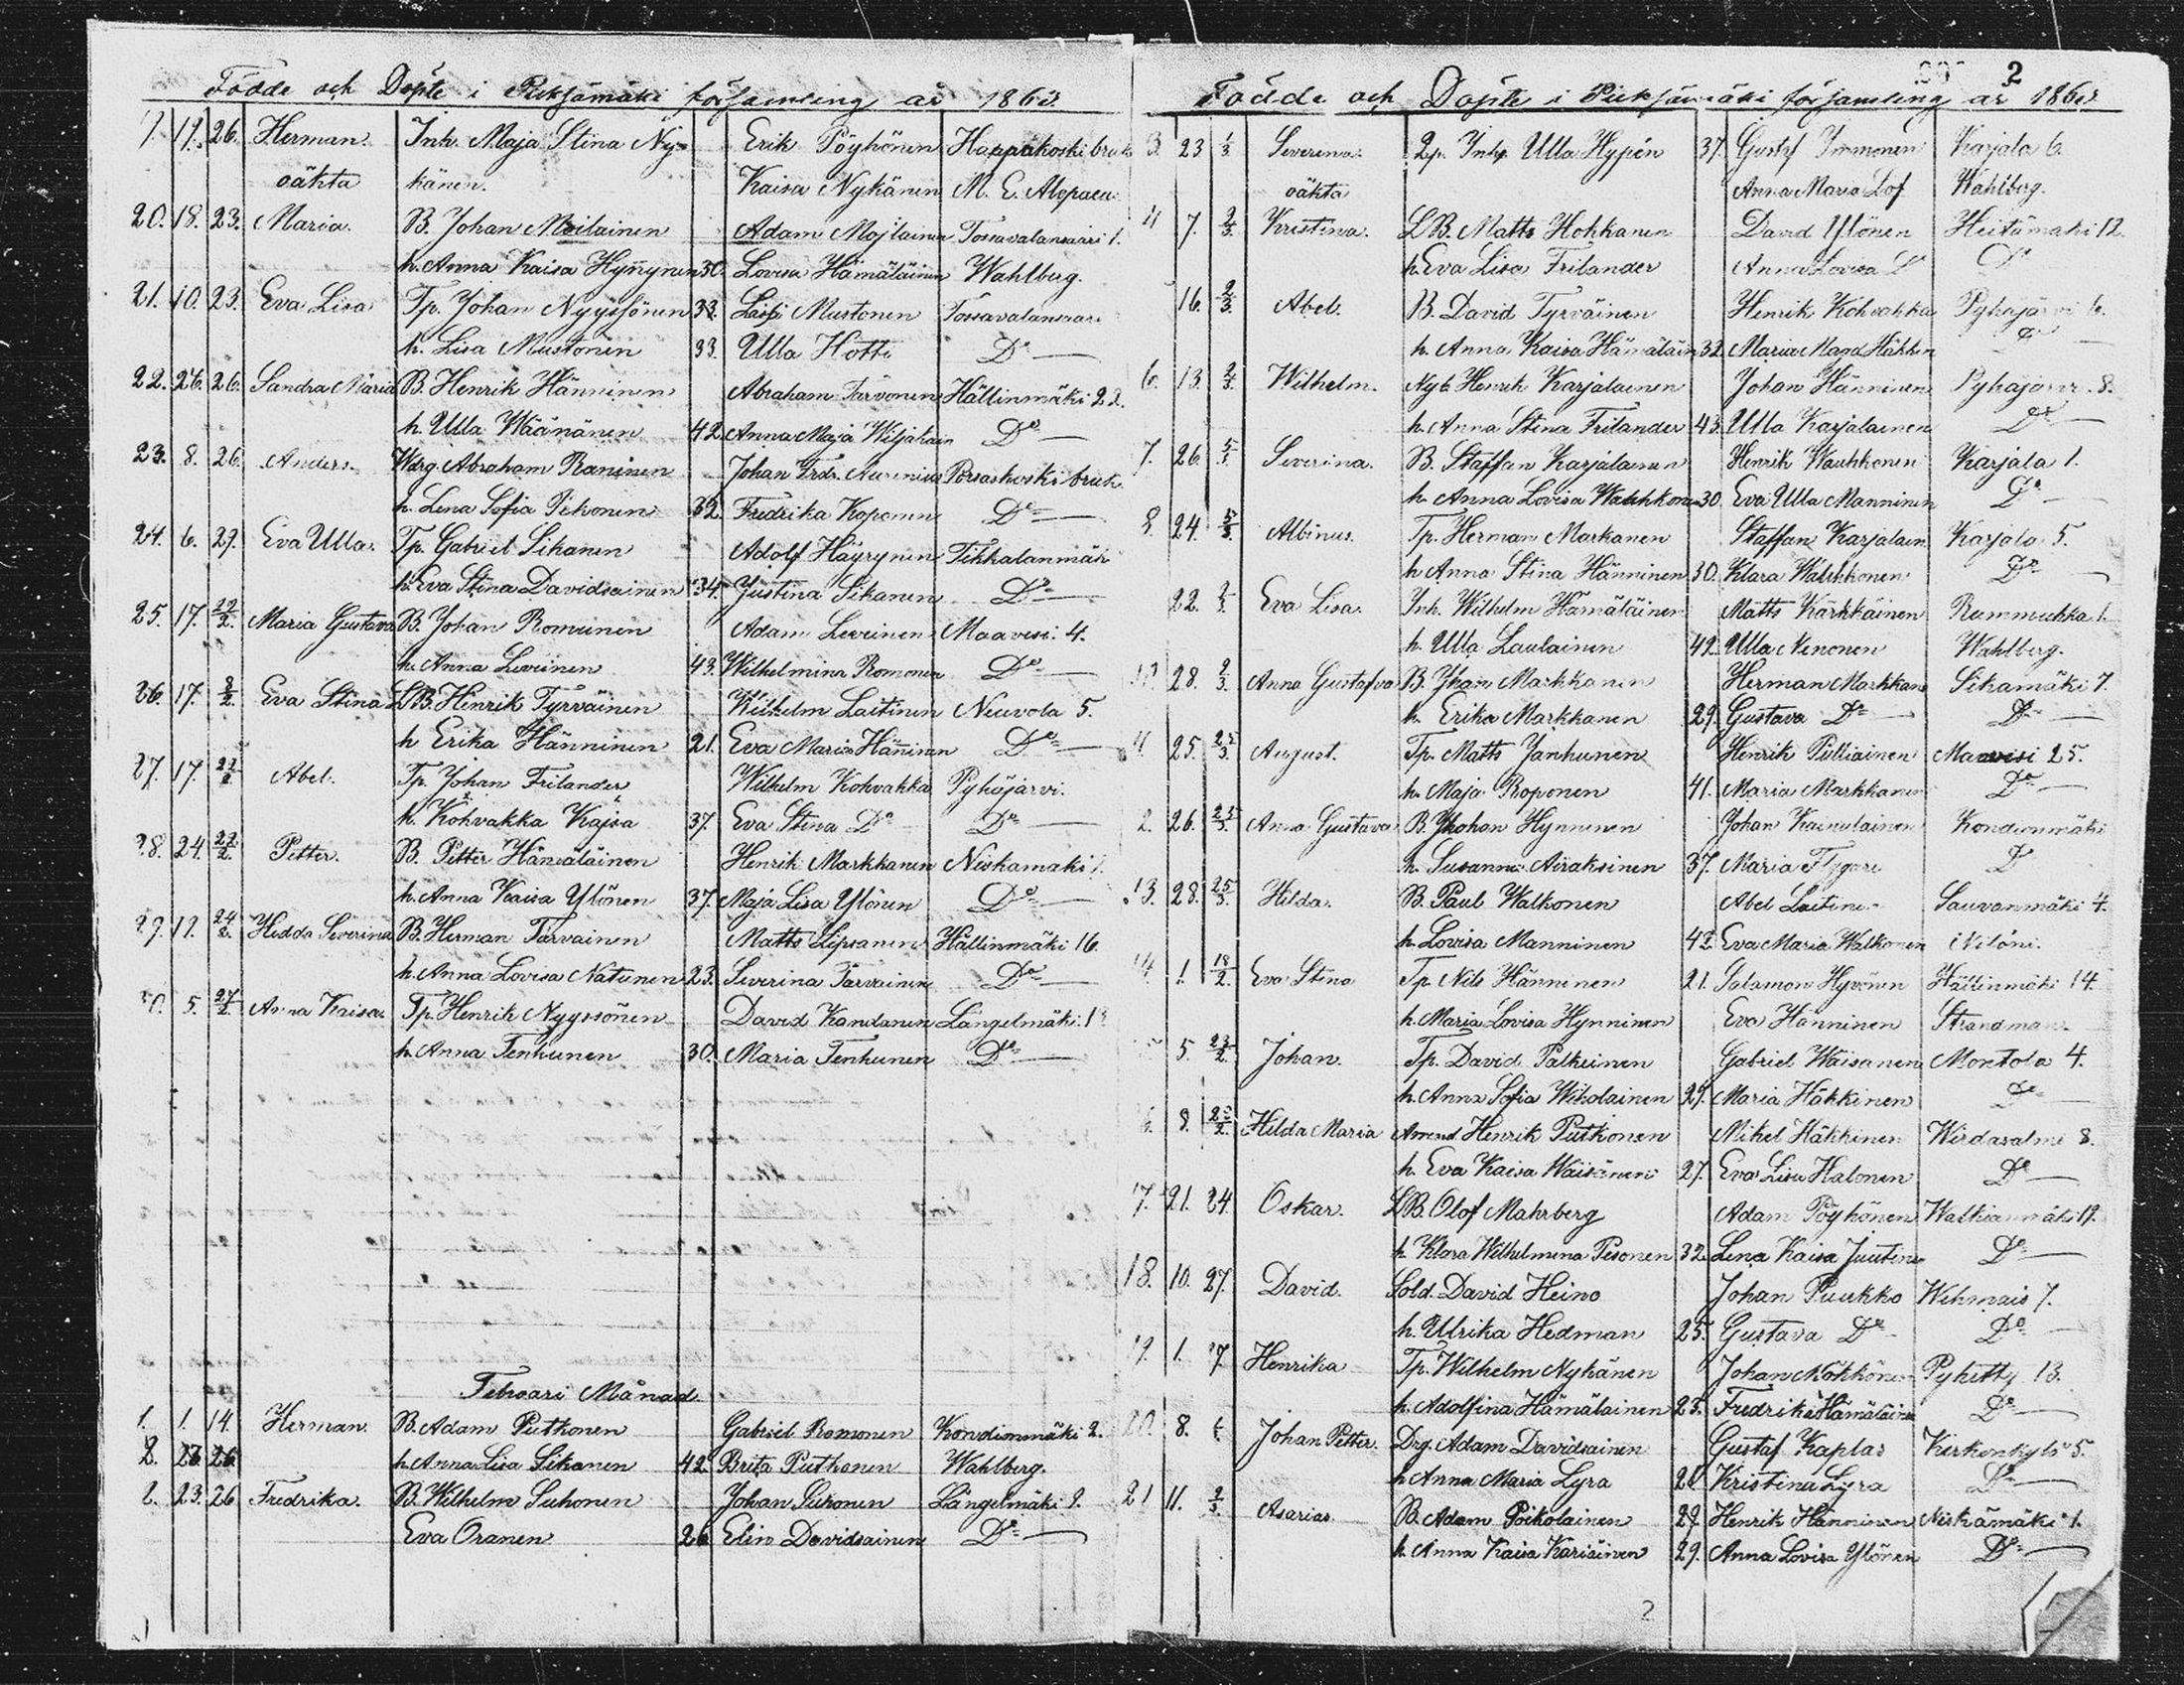 Födde och Döpte i Pieksämäki församling år 186
7. 17. 26. Herman. Inh. Maja Stina Ny- Erik Pöyhönen Haapakoski bruk
oäkta känen. Kaisa Nykänen M. E. Alopaeu
20. 18. 23. Maria. B. Johan Moilainen Adam Mojlainen Tossavalansaari 1.
h. Anna Kaisa Hynnynen 30. Lovisa Hämäläinen Wahlberg.
21. 10. 23. Eva Lisa Tp. Johan Nyyssönen 33. Lassi Mustonen Tossavalansaar
h. Lisa Mustonen 33. Ulla Hotti D:o
22. 26. 26. Sandra Maria B. Henrik Hänninen Abraham Tarvonen Hällinmäki 22.
h. Ulla Wäänänen 42. Anna Maja Wiljahain D:o
23. 8. 26. Anders. Wdrg. Abraham Raninen Johan Frdr. Aurenius Porsaskoski bruk
h. Lena Sofia Pekonen 32. Fredrika Koponen D:o
24. 6. 29. Eva Ulla. Tp. Gabriel Sikanen Adolf Häyrynen Tikkalanmäk
h. Eva Stina Davidsainen 34. Justina Sikanen D:o
25. 17. Maria Gustava B. Johan Romunen Adam Leveinen Maavesi. 4.
h. Anna Leveinen 43. Wilhelmina Romonen D:o
26. 17. 2/2. Eva Stina LB. Henrik Tyrväinen Wilhelm Laitinen Neuvola 5.
h Erika Hänninen 21. Eva Maria Hänninen D:o
27. 17. 22/2 Abel. Tp. Johan Frilander Wilhelm Kohvakka Pyhäjärvi.
h. Kohvakka Kajsa 37. Eva Stina D:o D:o
28. 24. 22/2. Petter. B. Petter Hämäläinen Henrik Markkanen Niskamäki 1.
h. Anna Kaisa Ylönen 37. Maja Lisa Ylönen D:o
29. 19. 24/2. Hedda Severina B. Herman Tarvainen Matts Lipsanen Hällinmäki 16.
h. Anna Lovisa Natunen 23. Severina Tarvainen D:o
5. 27/2 Anna Kaisa. Tp. Henrik Nyyssönen David Kandanen Längelmäki. 1
h. Anna Tenhunen 30. Maria Tenhunen D:o
Februari Månad
1. 1. 14. Herman. B. Adam Putkonen Gabriel Romonen Kondionmäki 2.
2. 23 26 h. Anna Lisa Sikanen 42. Brita Putkonen Wahlberg.
2. 23. 26 Fredrika. B. Wilhelm Suhonen Johan Suhonen Längelmäki 9.
Eva Oranen 26 Elin Davidsainen D:o
2
Födde och Döpte i Pieksämäki församling år 186
3. 23 1/3 Severina. Inh. Ulla Hypén 37. Gustaf Immonen Karjala 6.
oäkta Anna Maria Lof Wahlberg.
4 7. 2/3. Kristina. LB. Matts Hokkanen David Ylönen Heitämäki 12.
h. Eva Lisa Frilander Anna Lovisa D:o D:o
16. 2/3. Abel. B. David Tyrväinen Henrik Kohvakka Pyhäjärvi 6.
h. Anna Kaisa Hämäläin 32. Maria Magd. Häkkin D:o
6. 13. 2/3. Wilhelm. Nyb. Henrik Karjalainen Johan Hänninen Pyhäjärv. 8.
h. Anna Stina Frilander 43. Ulla Karjalainen D:o
7. 26. 5/3. Severina. B. Staffan Karjalainen Henrik Wauhkonen Karjala 1.
h. Anna Lovisa Wauhkonen 30. Eva Ulla Manninen D:o
8. 24. 5/3. Albinus. Tp. Herman Markanen Staffan Karjalain Karjala 5.
h Anna Stina Hänninen 30. Klara Wauhkonen D:o
22. Eva Lisa. Inh. Wilhelm Hämäläinen Matts Kärkkäinen Rummukka 1.
h. Ulla Laulainen 42. Ulla Nenonen Wahlberg.
28. 2/3. Anna Gustafva B. Johan Markkanen Herman Markkan Sikamäki 7.
h. Erika Markkanen 29. Gustava D:o D:o
25. 25/3 August. Tp. Matts Janhunen Henrik Pulliainen Maavesi 25.
h. Maja Roponen 41. Maria Markkanen D:o
2. 26. 25/3. Anna Gustava B. Johan Hynninen Johan Kainulainen Kondionmäki
h. Susanna Airaksinen 37. Maria Flygare D
13. 28. 25/3. Hilda. B. Paul Walkonen Abel Laitine Sauvanmäki 4.
h. Lovisa Manninen 42. Eva Maria Walkonen
1. 18/2. Eva Stina Tp. Nils Hänninen 21. Salamon Hyvönen Hällinmäki 14.
h. Maria Lovisa Hynninen Eva Hänninen Strandman.
5. 23/2. Johan. Tp. David Palkeinen Gabriel Wäisänen Montola 4.
h. Anna Sofia Wikolainen 29. Maria Häkkinen D:o
8. Hilda Maria Arrend. Henrik Putkonen Mikel Häkkinen Wirdasalmi 8.
h. Eva Kaisa Wäisänen 27. Eva Lisa Halonen D:o
21. 24. Oskar. LB. Olof Mahrberg Adam Pöyhönen Walkiamäki 19.
h. Klara Wilhelmina Pesonen 32. Lena Kaisa Juutine D:o
18. 10. 27. David. Sold. David Heino Johan Puukko Wehmais 7.
h. Ulrika Hedman 25. Gustava D:o D:o
1. Henrika Tp. Wilhelm Nykänen Johan Kokkönen Pyhitty 13.
h. Adolfina Hämäläinen 23. Fredrika Hämäläine D:o
20. 8. Johan Petter. Drg. Adam Davidsainen Gustaf Kaplas Kirkonkylä 5.
h Anna Maria Lyra 28 Kristina Lyra D:o
21 11. 2/3. Asarias. B. Adam Poikolainen 29 Henrik Hänninen Niskämäki 1.
h. Anna Kaisa Kariainen 29. Anna Lovisa Ylönen D:o
2